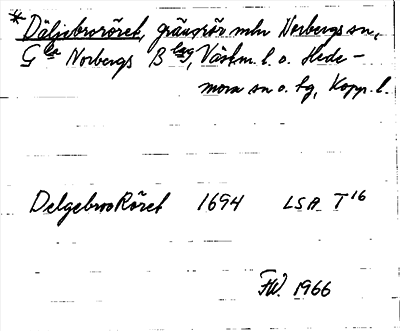 * Däljebroröret, gränsrör mln Norbergs sn,
Gla Norbergs Blag, Västm. l. o. Hede-
mora sn o. tg, Kopp. l.
DelgebrooRöret 1694 LSA T16
FW. 1966